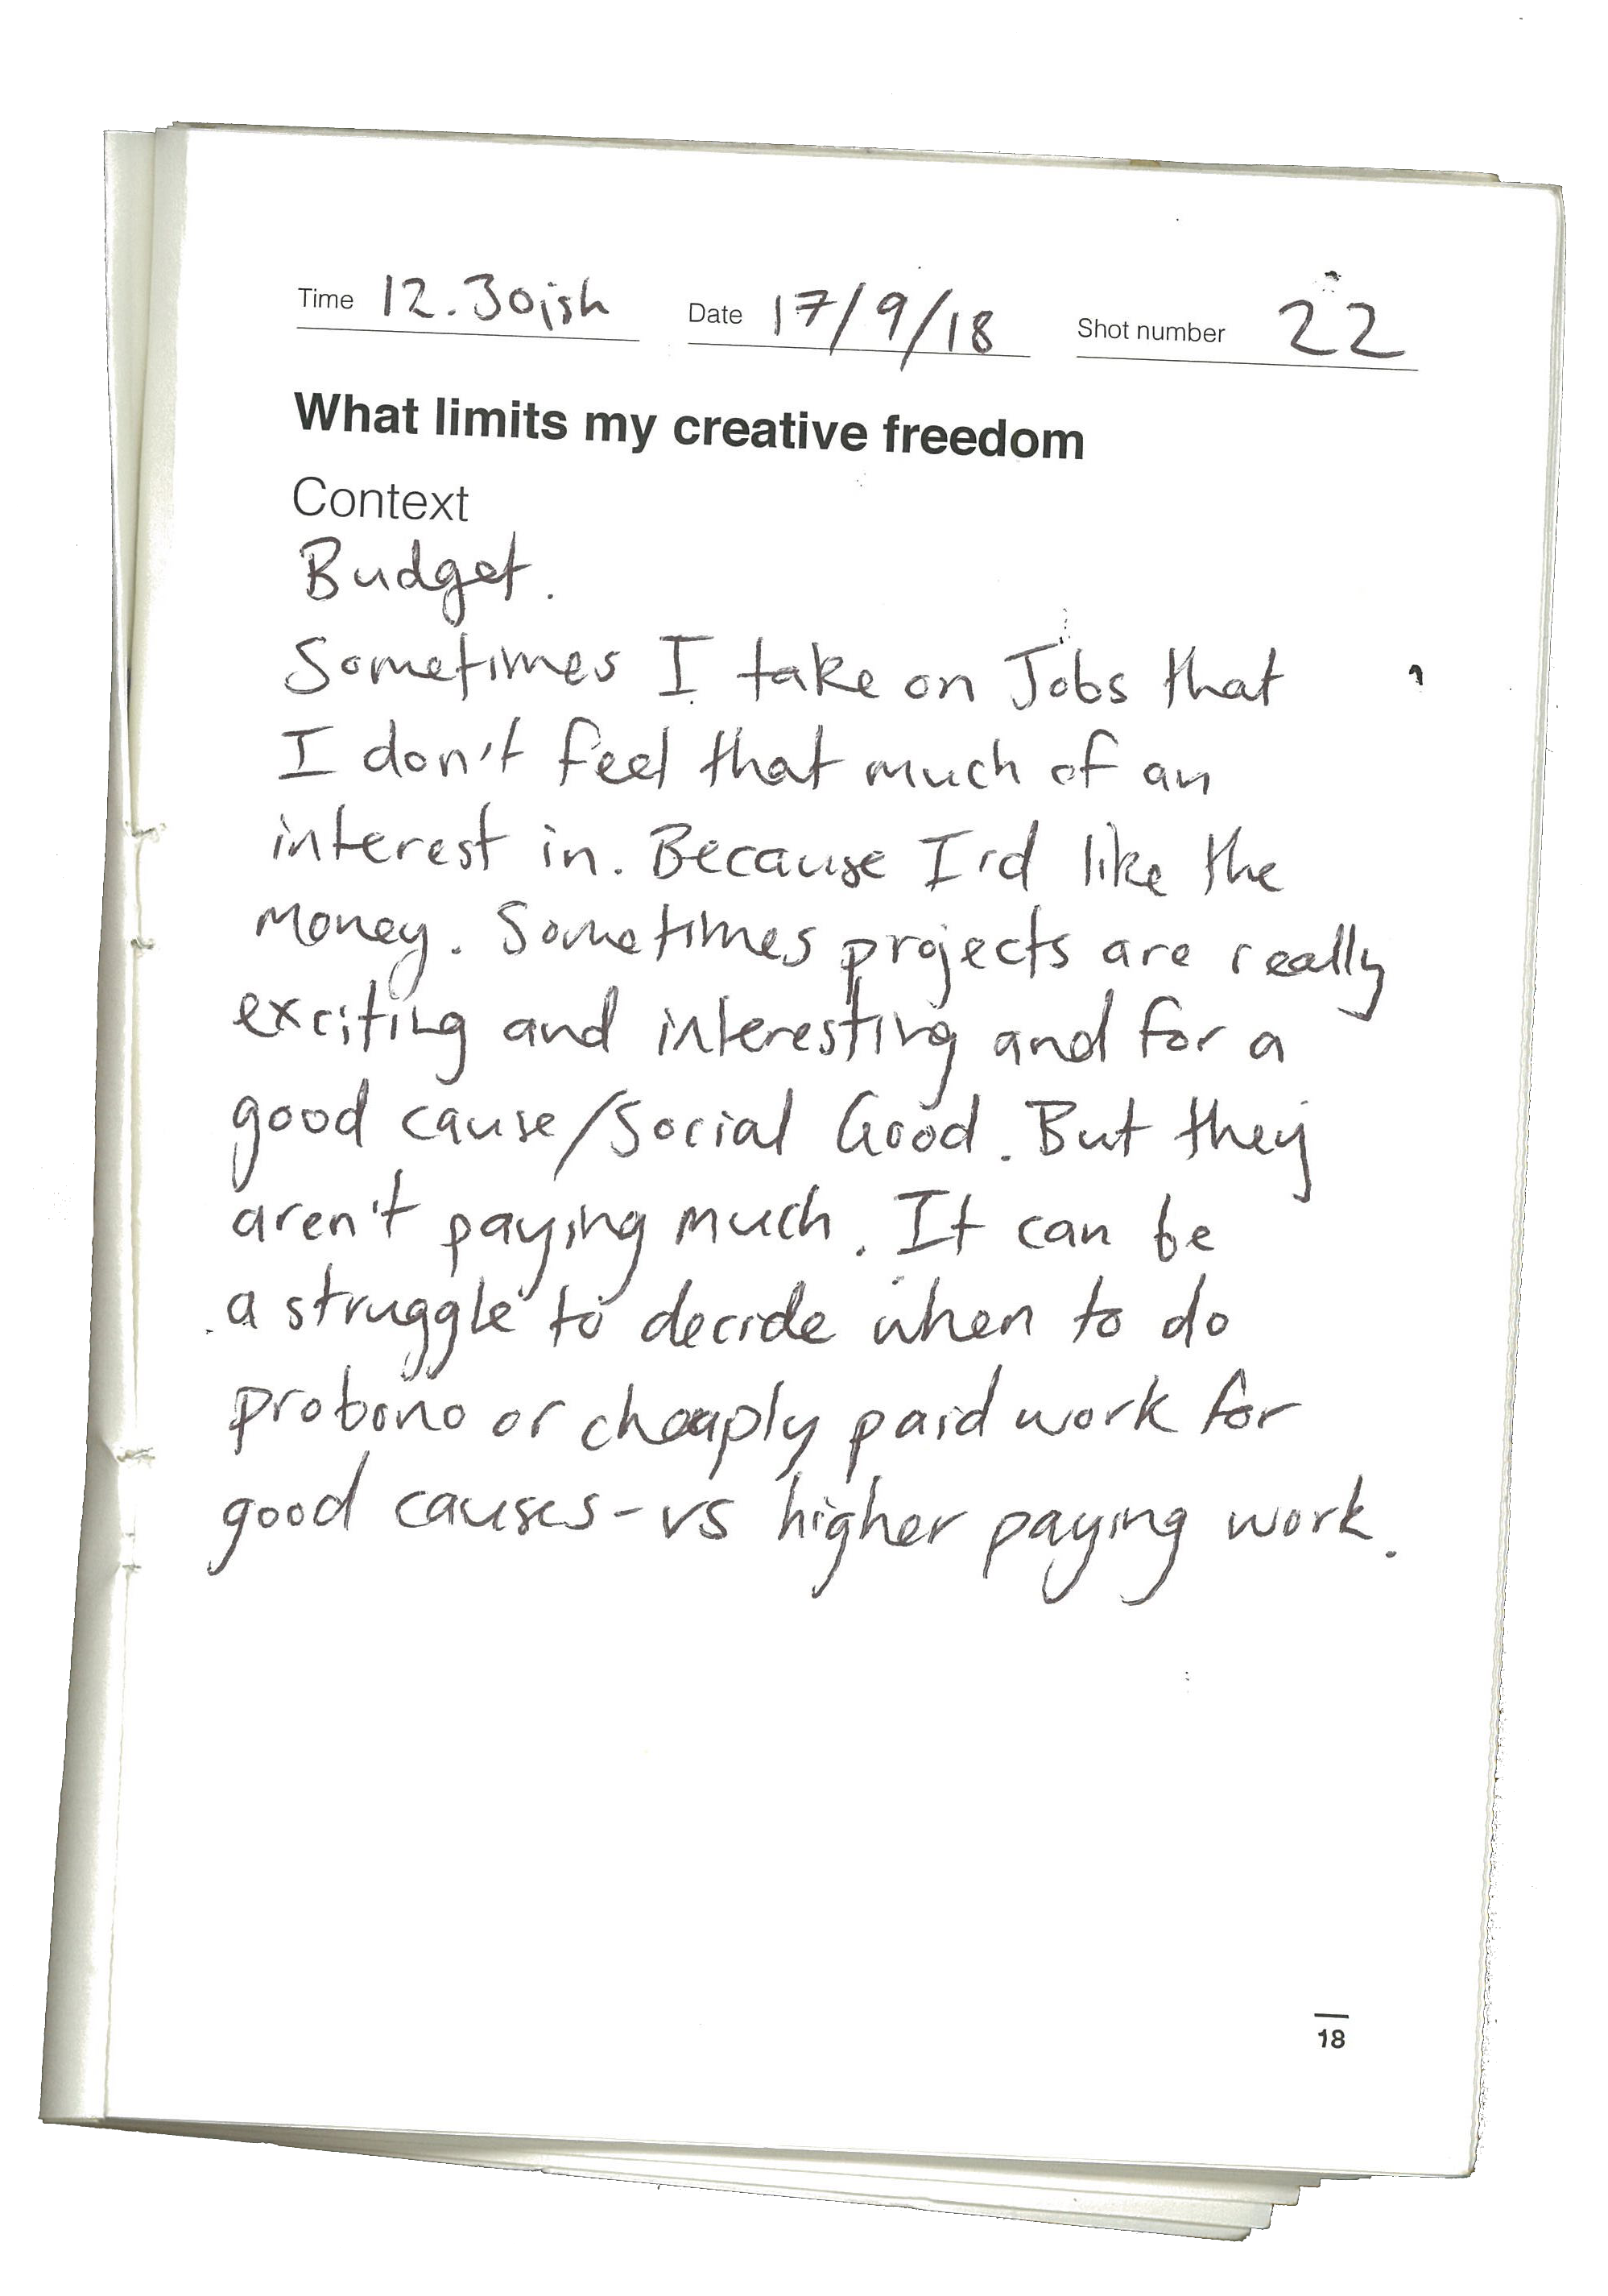 Time 12.30ish Date 17/9/18 Shot number 22
What limits my creative freedom
Context
Budget.
Sometimes I take on Jobs that
I don't feel that much of an
interest in. Because I'd like the
money. Sometimes projects are really
exciting and interesting and for a
good cause/Social Good. But they
aren't paying much. It can be
a struggle to decide when to do
probono or cheaply paid work for
good causes - vs higher paying work.
18